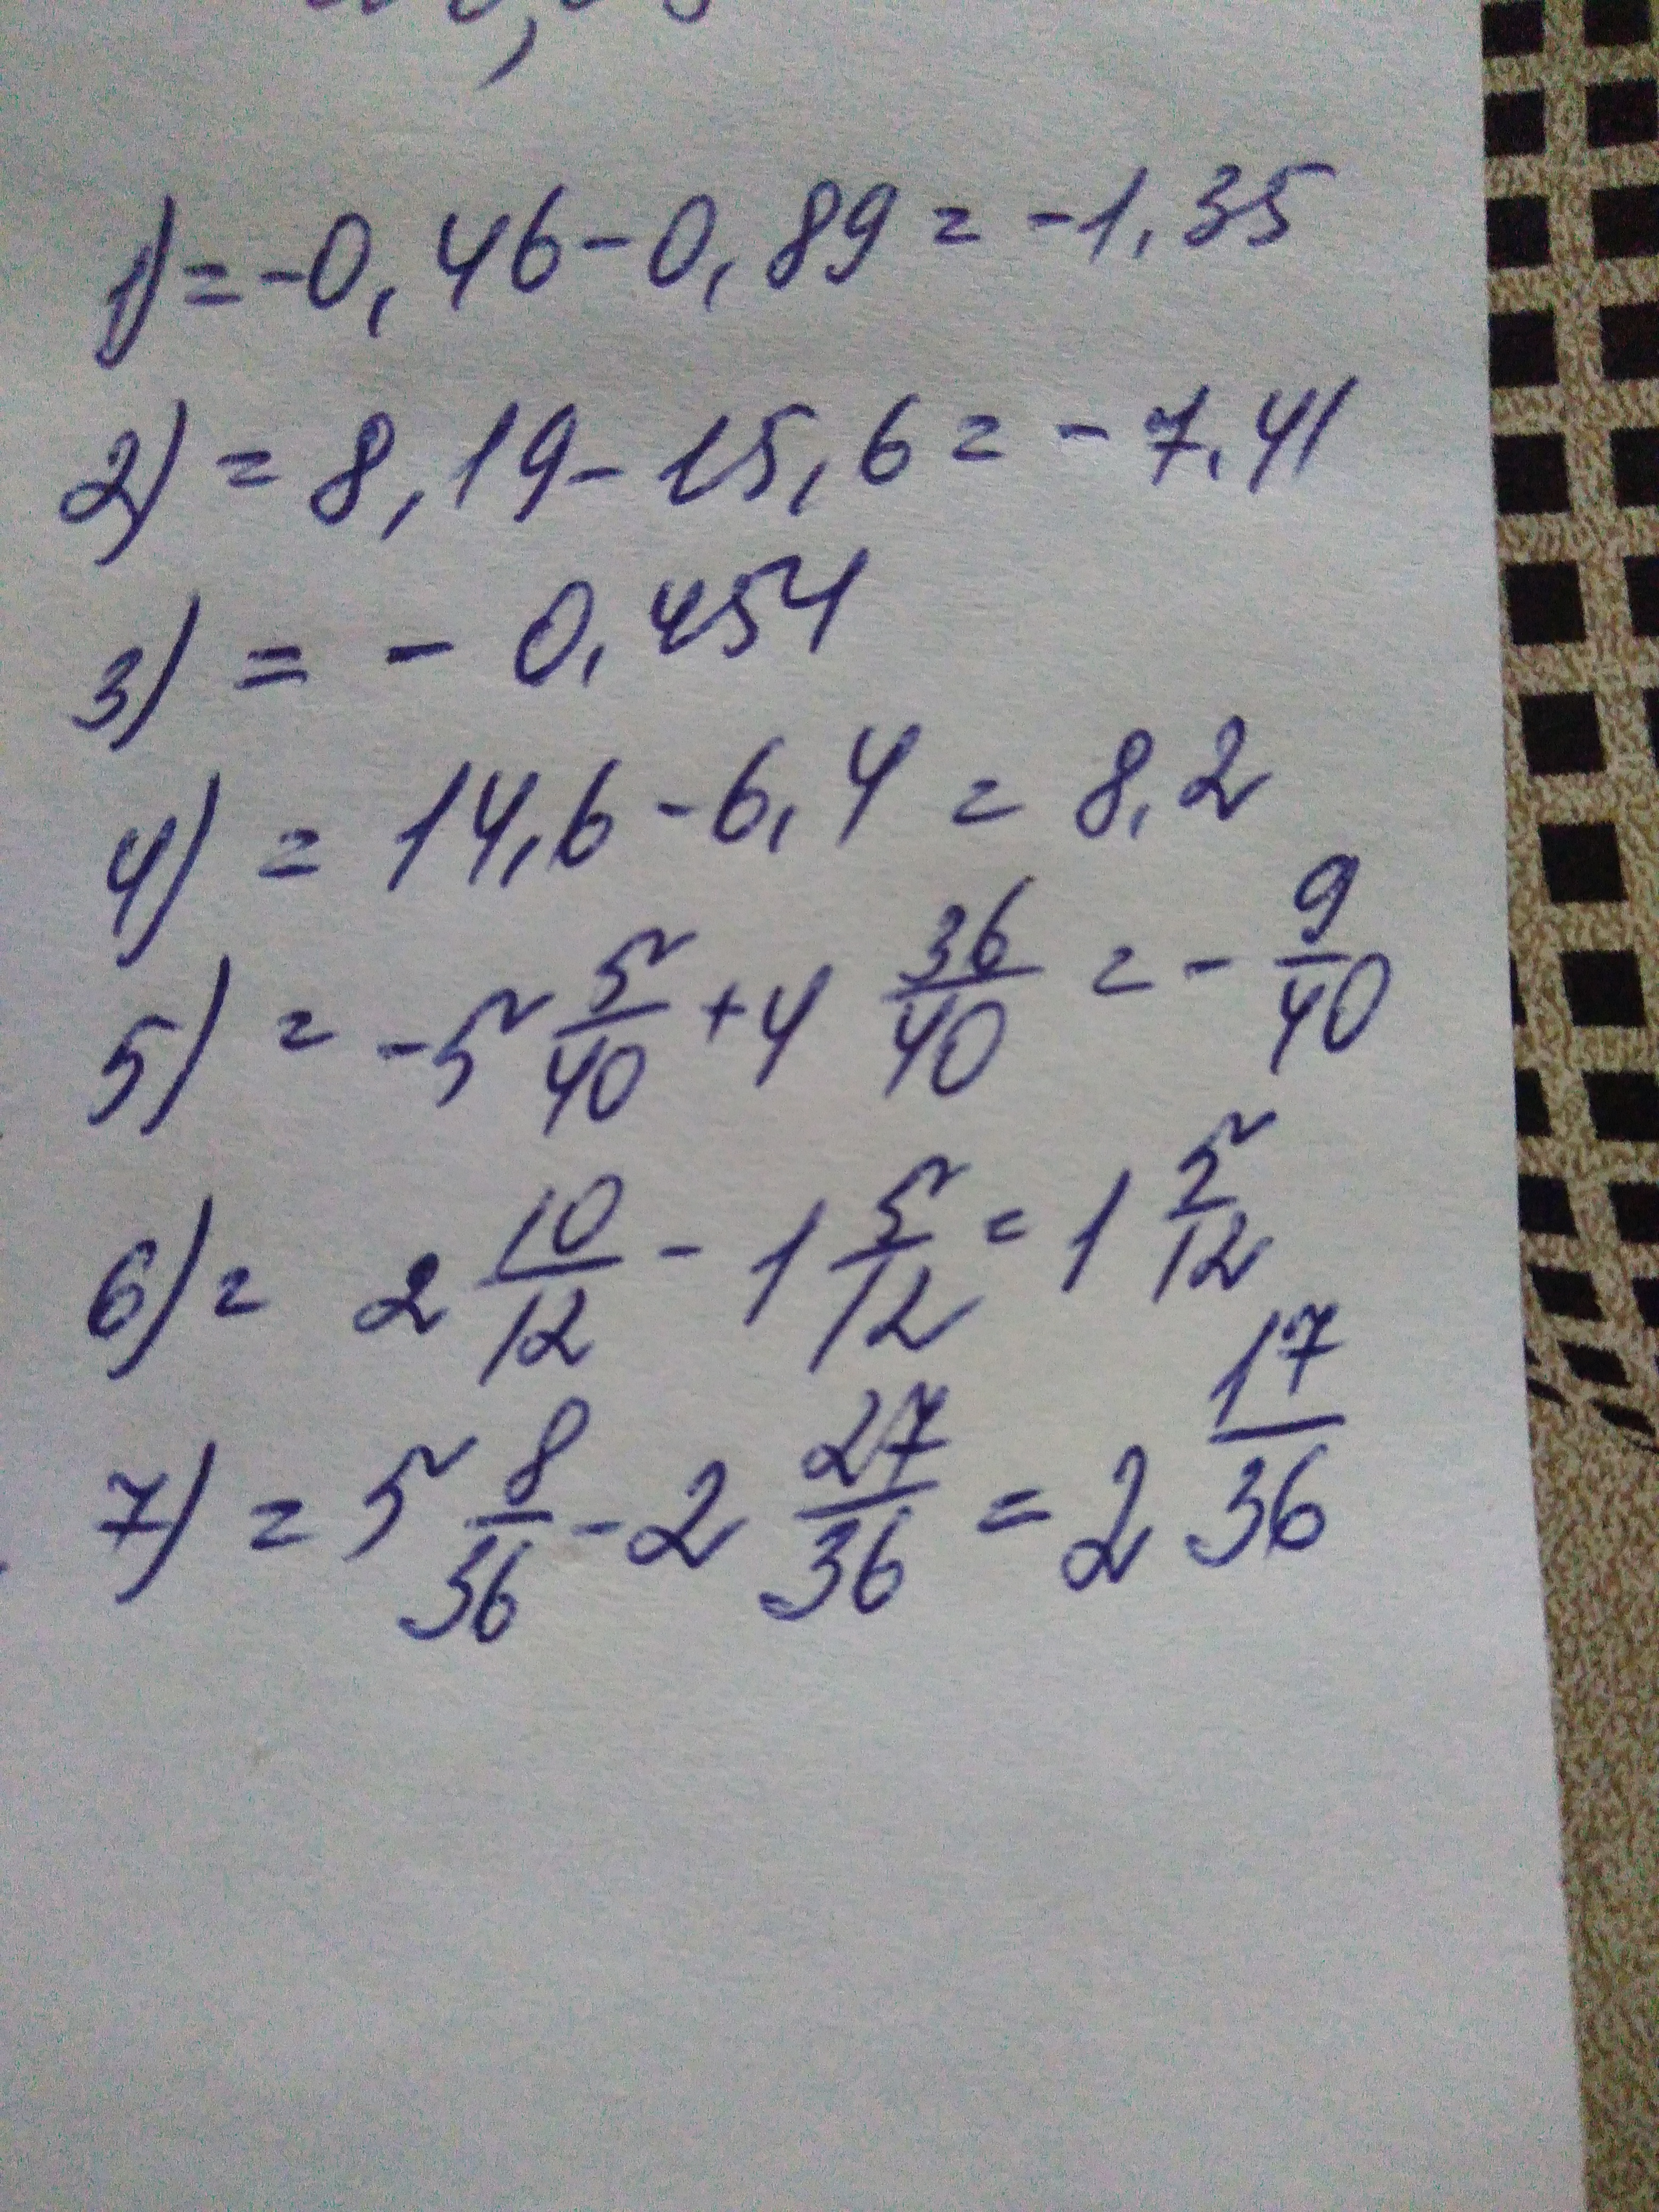 1) = -0,46 - 0,89 = -1,35
2) = 8,19 - 15,6 = -7,41
3) = - 0,454
4) = 14,6 - 6,4 = 8,2
5) = -5 5/40 + 4 36/40 = - 9/40
6) = 2 10/12 - 1 5/12 = 1 5/12
7) = 5 8/36 - 2 27/36 = 2 17/36